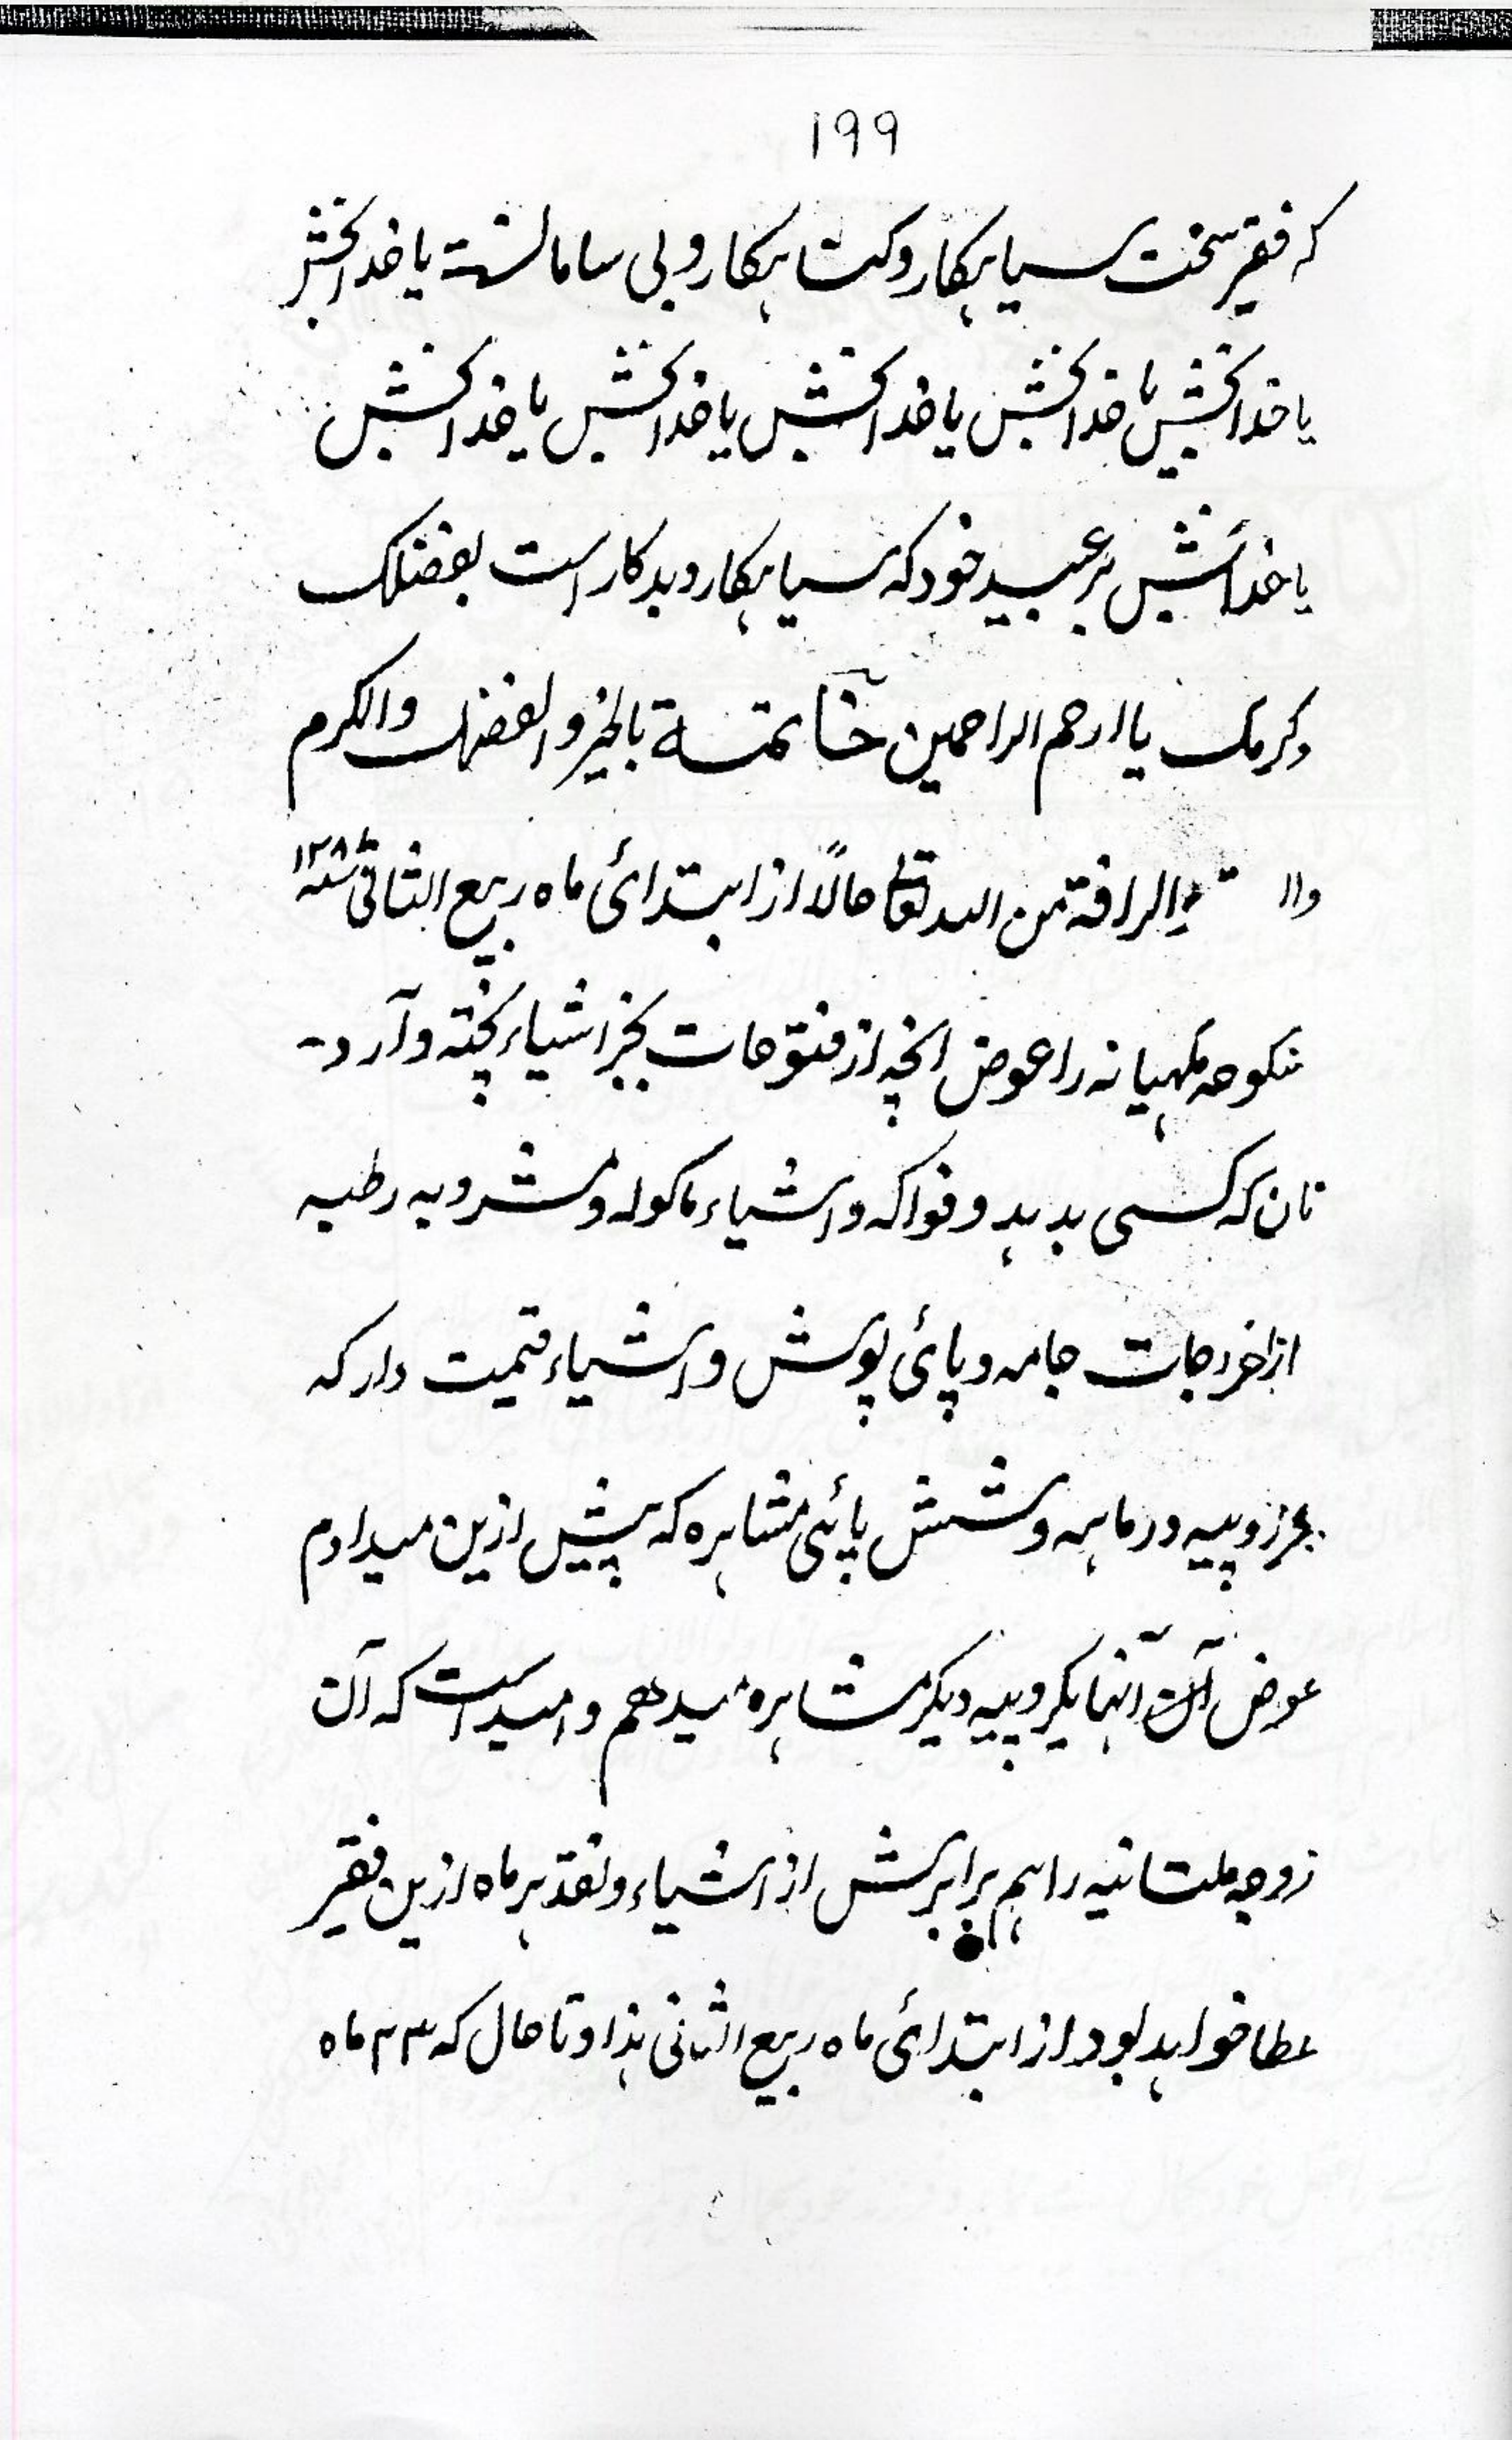 ۱۹۹
که فقیر سخت سیاہکار و کتاہکار و بی سامانست یا خدا بخش
یا خدا بخش یا خدا بخش یا خدا بخش یا خدا بخش یا خدا بخش
یا خدا بخش بر عبید خود که سیاہکار و بدکار است بفضلک
وکرمک یا ارحم الراحمین خاتمة بالخیر والفضل والکرم
والرافة من اللہ تعا حالاً از ابتدائی ماه ربیع الثانی ۱۲۸۸
منکوحه مکہیانه را عوض انچه از فتوحات بجز اشیاء پخته و آرد
نان که کسی بدہد و فواکه و اشیاء ماکوله و مشروبه رطبه
از اخراجات جامه و پائی پوش و اشیاء قیمت دار که
بجز روپیه در ماہه و شش پائی مشاہره که پیش ازین میدادم
عوض آن آنہا یکروپیه دیکر مشاہره میدهم و امید است که آن
زوجه ملتانیه را ہم برابرش از اشیاء و نقد ہر ماه ازین فقیر
عطا خواہد بود از ابتدائی ماه ربیع الثانی ہذا و تا حال که ۲۳ ماه